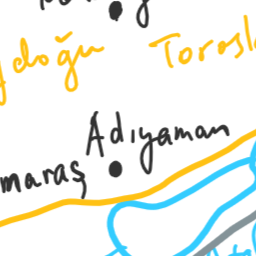 doğu Torosl
Adıyaman
maraş